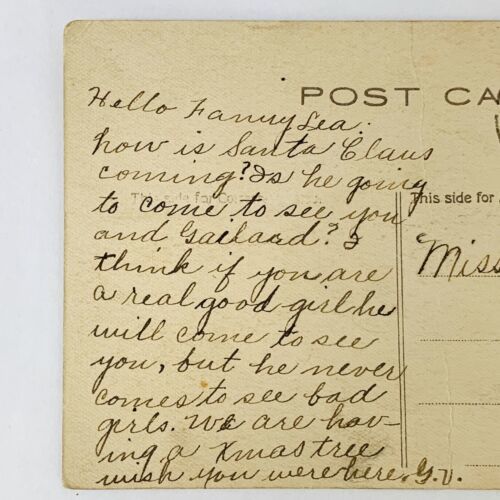 POST CA
Hello Fanny Lea.
how is Santa Claus
coming? Is he going
This side for Cor
This side for
to come to see you
and Gaillard? I
Miss
think if you are
a real good girl he
will come to see
you, but he never
comes to see bad
girls. We are hav-
ing a Xmas tree
wish you were here. G.V.